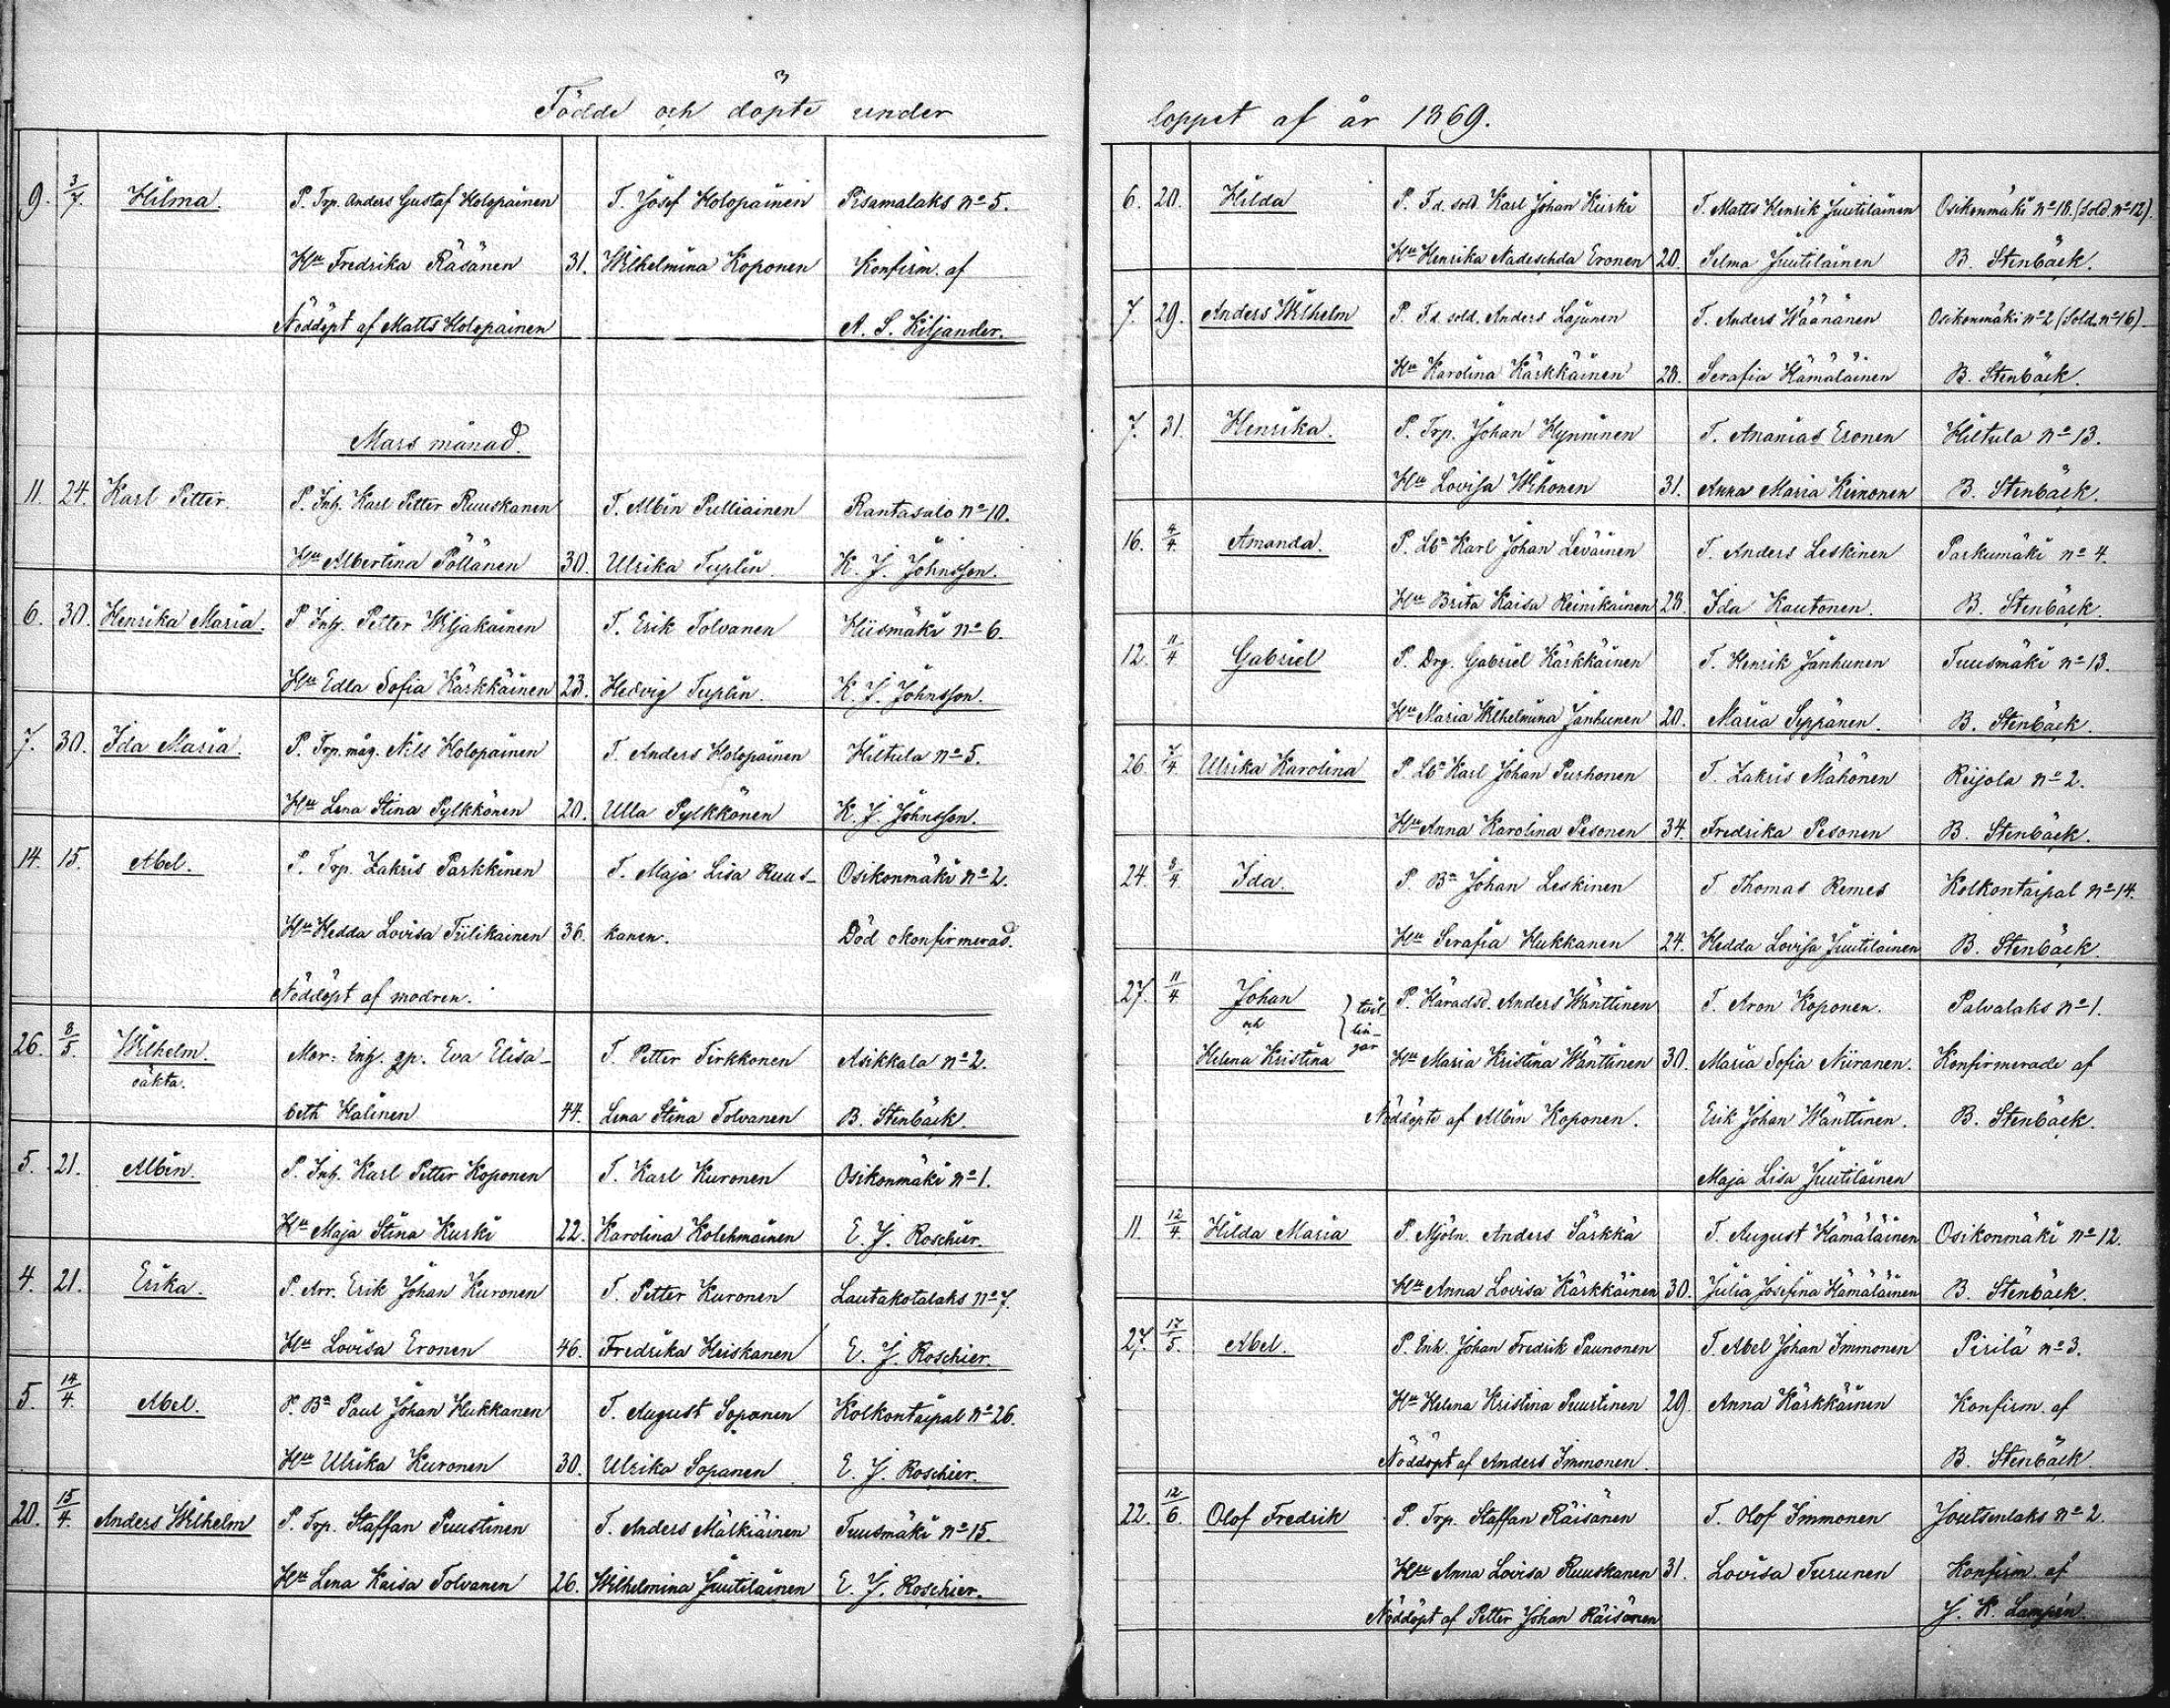 Födde och döpte under
9. 3/7. Hilma. P. Trp. Anders Gustaf Holopainen T. Josef Holopainen Pisamalaks No 5.
Hu Fredrika Räsänen 31. Wilhelmina Koponen Konfirm. af
Nöddöpt af Matts Holopainen A. S. Kiljander.
Mars månad.
11. 24. Karl Petter. P. Inh. Karl Petter Ruuskanen T. Albin Pulliainen Rantasalo No 10.
Hu Albertina Pöllänen 30. Ulrika Tuplin. K. J. Johnsson.
6. 30. Henrika Maria. P. Inh. Petter Wiljakainen T. Erik Tolvanen Hiismäki No 6.
Hu Edla Sofia Kärkkäinen 23. Hedvig Tuplin. K. J. Johnsson.
7. 30. Ida Maria. P. Trp. måg. Nils Holopainen T. Anders Holopainen Hiltula No 5.
Hu Lena Stina Pylkkönen 20. Ulla Pylkkönen K. J. Johnsson.
14. 15. Abel. P. Trp. Zakris Parkkinen T. Maja Lisa Ruus- Osikonmäki No 2.
Hu Hedda Lovisa Tiilikainen 36. kanen. Död okonfirmerad.
Nöddöpt af modren.
26. 8/5. Wilhelm. Mor: Inh. gp. Eva Elisa- T. Petter Tirkkonen Asikkala No 2.
oäkta. beth Halinen 44. Lena Stina Tolvanen B. Stenbäck.
5. 21. Albin. P. Inh. Karl Petter Koponen T. Karl Kuronen Osikonmäki No 1.
Hu Maja Stina Kurki 22. Karolina Kolehmainen E. J. Roschier.
4. 21. Erika. P. Arr. Erik Johan Kuronen T. Petter Kuronen Lautakotalaks No 7.
Hu Lovisa Eronen 46. Fredrika Heiskanen E. J. Roschier.
5. 14/4. Abel. P. Bn Paul Johan Hukkanen T. August Sopanen Kolkontaipal No 26.
Hu Ulrika Kuronen 30. Ulrika Sopanen E. J. Roschier.
20. 15/4. Anders Wilhelm P. Trp. Staffan Puustinen T. Anders Mälkiäinen Tuusmäki No 15.
Hu Lena Kaisa Tolvanen 26. Wilhelmina Juutilainen E. J. Roschier.
loppet af år 1869.
6. 20. Hilda P. Fd. sold. Karl Johan Kurki T. Matts Henrik Juutilainen Osikonmäki No 18. (Sold. No 12).
Hu Henrika Nadeschda Eronen 20. Selma Juutilainen B. Stenbäck.
7. 29. Anders Wilhelm P. Fd. sold. Anders Lajunen T. Anders Wäänänen Osikonmäki No 2 (Sold. No 16).
Hu Karolina Kärkkäinen 28. Serafia Hämäläinen B. Stenbäck.
7. 31. Henrika. P. Trp. Johan Hynninen T. Ananias Eronen Hiltula No 13.
Hu Lovisa Wihonen 31. Anna Maria Keinonen B. Stenbäck.
16. 4/4. Amanda. P. Lbn Karl Johan Leväinen T. Anders Leskinen Parkumäki No 4.
Hu Brita Kaisa Reinikainen 28. Ida Kautonen. B. Stenbäck.
12. 11/4 Gabriel P. Drg. Gabriel Kärkkäinen T. Henrik Janhunen Tuusmäki No 13.
Hu Maria Wilhelmina Janhunen 20. Maria Seppänen. B. Stenbäck.
26. 7/4. Ulrika Karolina P. Lbn Karl Johan Purhonen T. Zakris Mähönen Reijola No 2.
Hu Anna Karolina Pesonen 34. Fredrika Pesonen B. Stenbäck.
24. 8/4. Ida. P. Bn Johan Leskinen T. Thomas Remes Kolkontaipal No 14.
Hu Serafia Hukkanen 24. Hedda Lovisa Juutilainen B. Stenbäck.
27. 11/4 Johan P. Häradsd. Anders Wänttinen T. Aron Koponen. Palvalaks No 1.
och } tvil-lin-gar
Helena Kristina Hu Maria Kristina Wänttinen 30. Maria Sofia Niiranen. Konfirmerade af
Nöddöpte af Albin Koponen. Erik Johan Wänttinen. B. Stenbäck.
Maja Lisa Juutilainen
11. 12/4 Hilda Maria P. Mjöln. Anders Särkkä T. August Hämäläinen Osikonmäki No 12.
Hu Anna Lovisa Kärkkäinen 30. Julia Josefina Hämäläinen B. Stenbäck.
27. 17/5. Abel. P. Inh. Johan Fredrik Paunonen T. Abel Johan Immonen Pirilä No 3.
Hu Helena Kristina Puustinen 29. Anna Kärkkäinen Konfirm. af
Nöddöpt af Anders Immonen. B. Stenbäck.
22. 12/6. Olof Fredrik P. Trp. Staffan Räisänen T. Olof Immonen Joutsenlaks No 2.
Hu Anna Lovisa Ruuskanen 31. Lovisa Turunen Konfirm. af
Nöddöpt af Petter Johan Räisänen J. K. Lampén.